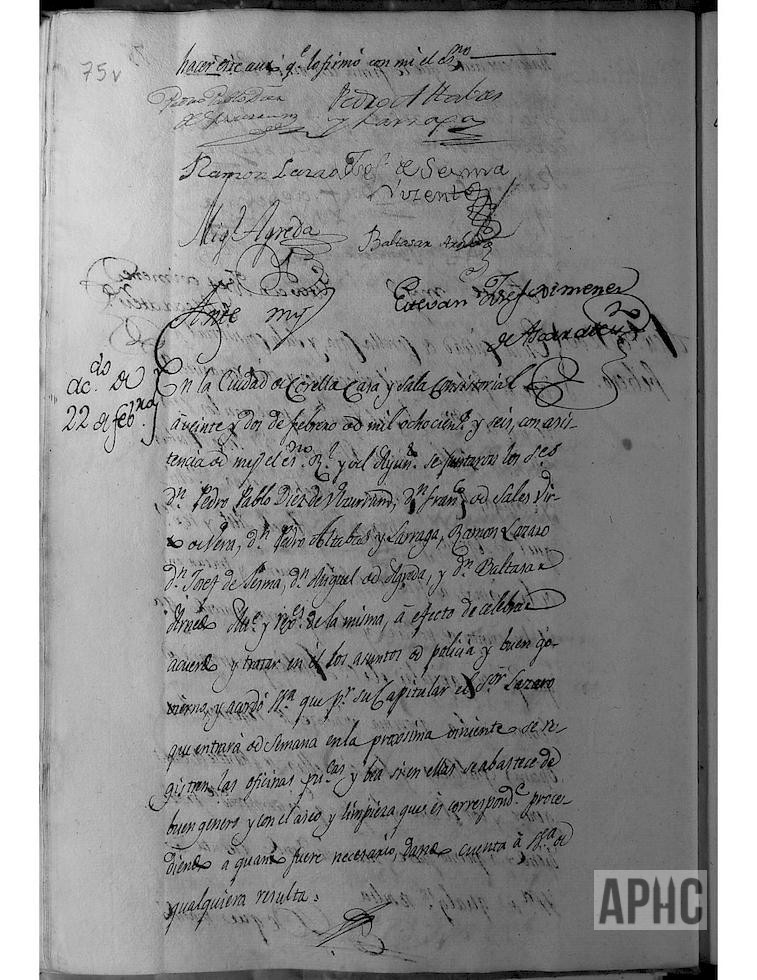 75v
hacer este auto q.e lo firmó con mi el Ss.no
Pedro Pablo Diez
de Ulzurrun
Pedro Altabas
y Larraga
Ramon Lazaro Josef de Sesma
Vizente
Mig.l Agreda
Baltasar Arnedo
Ante my
Estevan Josef Ximenez
de Azcarate
Ac.do de
22 de feb.ro
En la Ciudad de Corella Casa y Sala Consistorial
á veinte y dos de febrero de mil ochocien.s y seis, con asis-
tencia de mi el es.no R.l y del Ayun.to se juntaron los S.es
D.n Pedro Pablo Diez de Ulzurrun, D.n Fran.co de Sales Vir-
to de Vera, d.n Pedro Altabas y Larraga, Ramon Lazaro
D.n Josef de Sesma, d.n Miguel de Agreda, y d.n Baltasar
Arnedo Alc.e y reg.s de la misma, á efecto de celebrar
acuerdo y tratar en él los asuntos de policia y buen go-
vierno, y acordó S.a que p.r su Capitular el S.or Lazaro
que entrará de Semana en la proxsima viniente se re-
gistren las oficinas pu.cas y bea si en ellas se abastece de
buen genero y con el aseo y limpieza que es correspond.te proce-
diendo a quanto fuere necesario, dando cuenta á S.a de
qualquiera resulta.
APHC